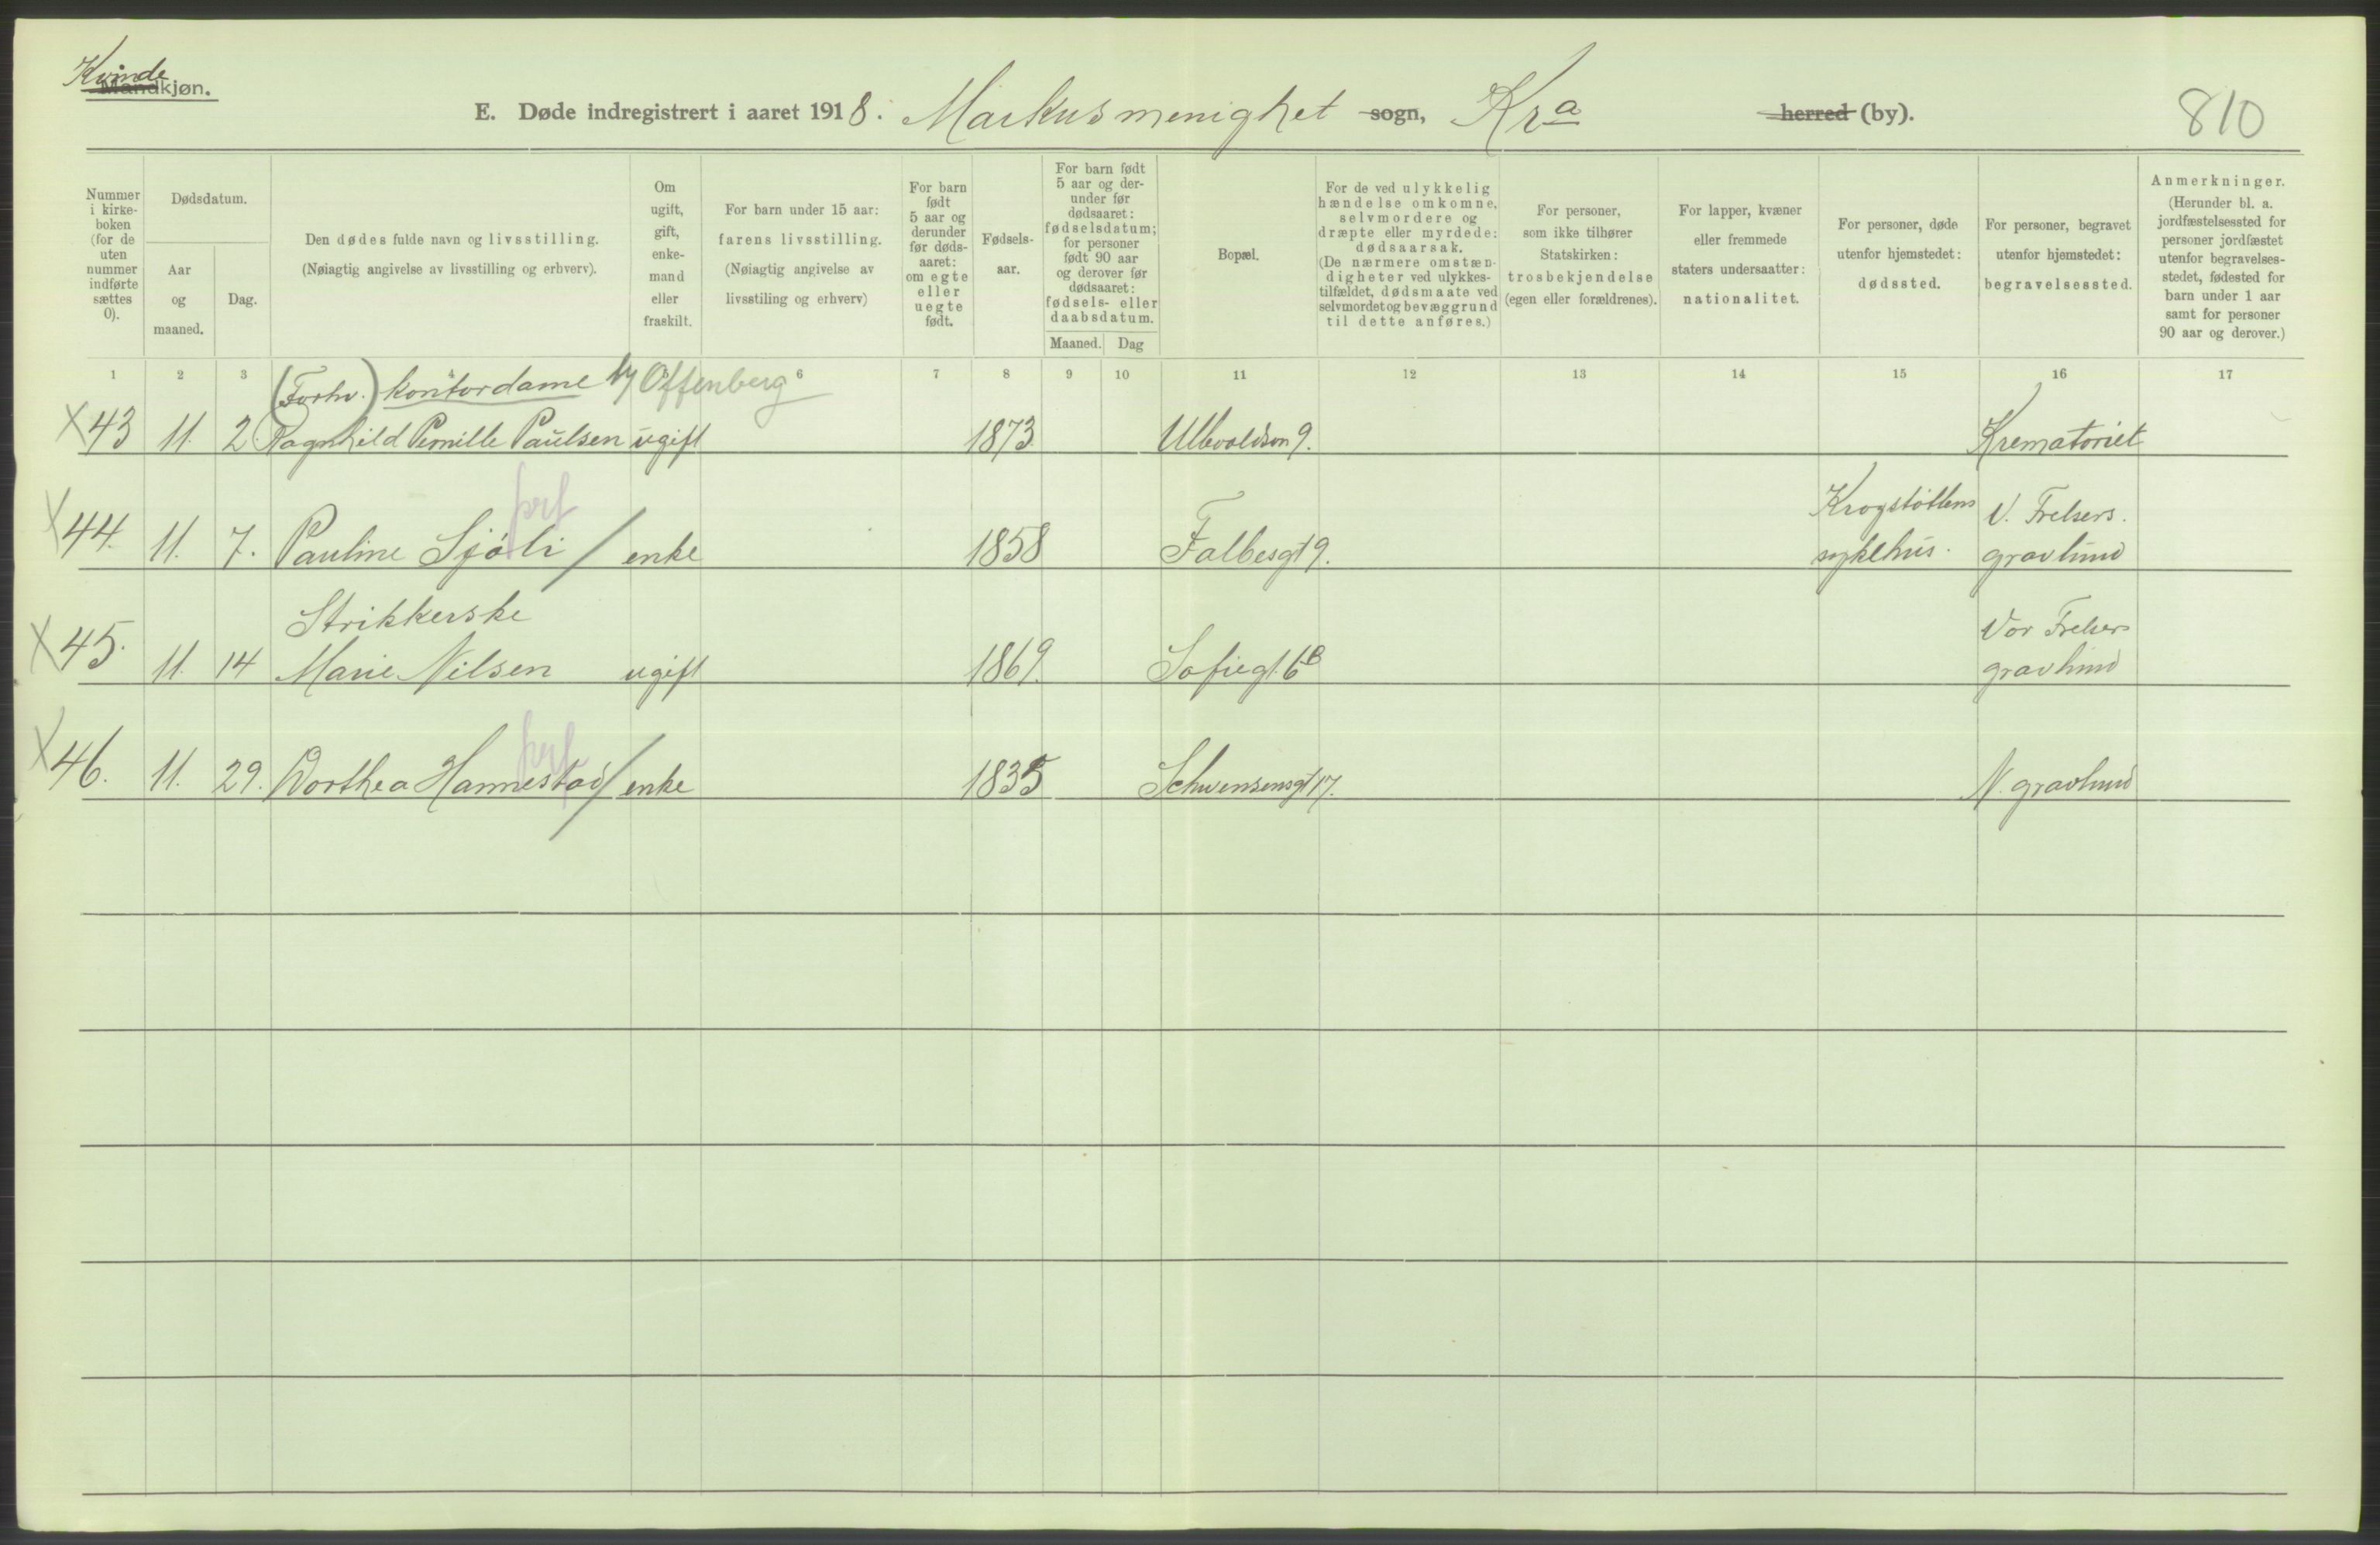 Kvinde
Mandkjøn.
E. Døde indregistrert i aaret 1918. Markus menighet sogn, Kra herred (by).
810
Nummer i kirke-boken (for de uten nummer indførte sættes 0).
Dødsdatum.
Aar og maaned.
Dag.
Den dødes fulde navn og livsstilling.
(Nøiagtig angivelse av livsstilling og erhverv).
Om ugift, gift, enke-mand eller fraskilt.
For barn under 15 aar: farens livsstilling.
(Nøiagtig angivelse av livsstiling og erhverv)
For barn født 5 aar og derunder før døds-aaret: om egte eller uegte født.
Fødsels-aar.
For barn født 5 aar og der-under før dødsaaret: fødselsdatum; for personer født 90 aar og derover før dødsaaret: fødsels- eller daabsdatum.
Maaned. Dag
Bopæl.
For de ved ulykkelig hændelse omkomne, selvmordere og dræpte eller myrdede: dødsaarsak.
(De nærmere omstæn-digheter ved ulykkes-tilfældet, dødsmaate ved selvmordet og bevæggrund til dette anføres.)
For personer, som ikke tilhører Statskirken: trosbekjendelse (egen eller forældrenes).
For lapper, kvæner eller fremmede staters undersaatter: nationalitet.
For personer, døde utenfor hjemstedet: dødssted.
For personer, begravet utenfor hjemstedet: begravelsessted.
Anmerkninger.
(Herunder bl. a. jordfæstelsessted for personer jordfæstet utenfor begravelses-stedet, fødested for barn under 1 aar samt for personer 90 aar og derover.)
1 2 3 4 5 6 7 8 9 10 11 12 13 14 15 16 17
(Forhv.) kontordame Offenberg
X 43 11. 2. Ragnhild Pernille Paulsen ugift 1873 9. Krematoriet
prt
X 44. 11. 7. Pauline Sjøli / enke 1858 Falbesgt 9. Krogstøttens sykehus. V. Frelsers. gravlund
Strikkerske
X 45. 11. 14 Marie Nilsen ugift 1869. Sofiegt. 6B Vor Frelsers gravlund
prt
X 46. 11. 29. Dorthea Hannestad / enke 1835 Schwensensgt 17. N. gravlund